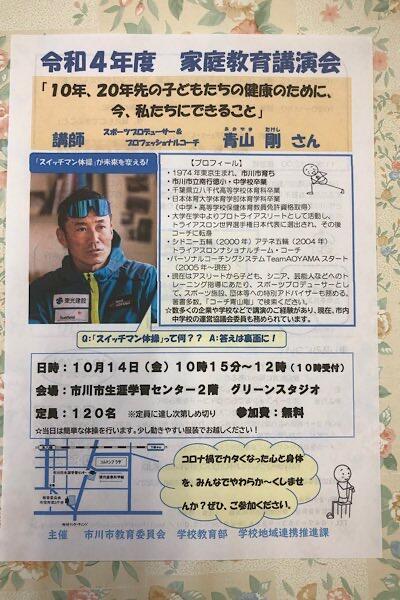 令和4年度　家庭教育講演会
「10年、20年先の子どもたちの健康のために、
今、私たちにできること」
講師　スポーツプロデューサー＆
プロフェッショナルコーチ
あおやま　たけし
青山 剛 さん
「スイッチマン体操」が未来を変える！
【プロフィール】
・1974年東京生まれ、市川育ち
・市川市立南行徳小・中学校卒業
・千葉県立八千代高等学校体育科卒業
・日本体育大学体育学部体育学科卒業
（中学・高等学校保健体育教員免許資格取得）
・大学在学中よりプロトライアスリートとして活動し、
トライアスロン世界選手権日本代表に選出され、その後
コーチに転身
・シドニー五輪（2000年）アテネ五輪（2004年）
トライアスロンナショナルチーム・コーチ
・パーソナルコーチングシステムTeamAOYAMAスタート
（2005年～現在）
・現在はアスリートから子ども、シニア、芸能人などへのト
レーニング指導にあたり、スポーツプロデューサーとし
て、スポーツ施設、団体等への特別アドバイザーも務める。
著書多数。「コーチ青山剛」で検索ください。
☆数多くの企業や学校などで講演のご経験があり、現在、市内
中学校の運営協議会委員も務められています。
東光建設
Q:「スイッチマン体操」って何？？　A:答えは裏面に！
日時：10月14日（金）10時15分～12時（10時受付）
会場：市川市生涯学習センター2階　グリーンスタジオ
定員：120名　※定員に達し次第しめ切り　参加費：無料
☆当日は簡単な体操を行います。少し動きやすい服装でお越しください！
コロナ禍でカタくなった心と身体
を、みんなでやわらか～くしませ
んか？ぜひ、ご参加ください。
主催　市川市教育委員会　学校教育部　学校地域連携推進課